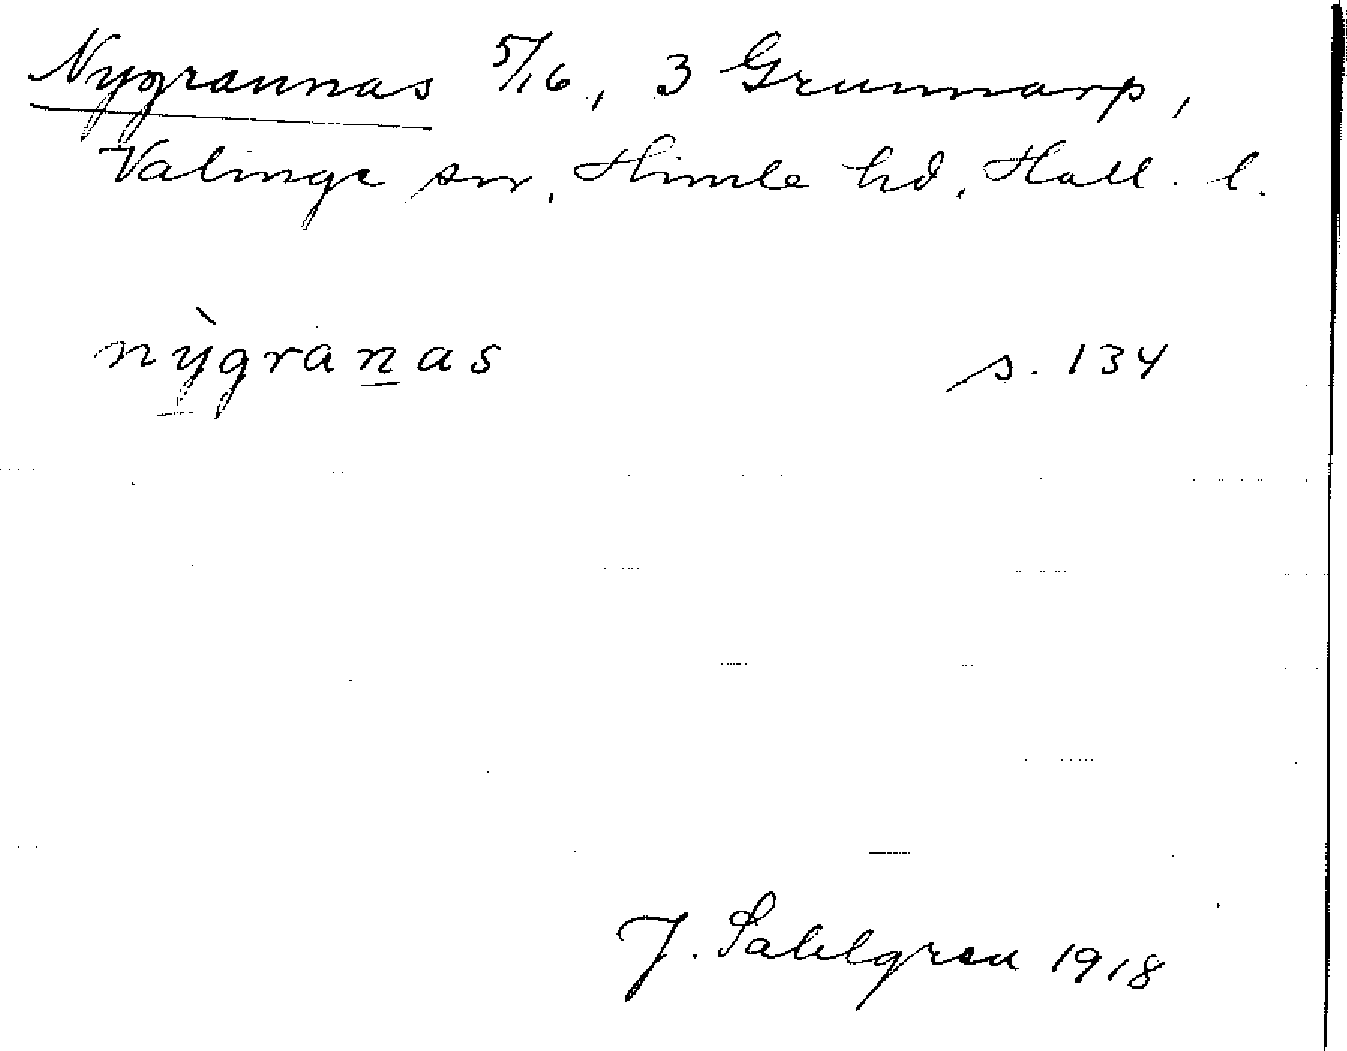 Nygrannas 5/16, 3 Grunnarp,
Valinge sn, Himle hd, Hall. l.
nỳgranas s. 134
J. Sahlgren 1918